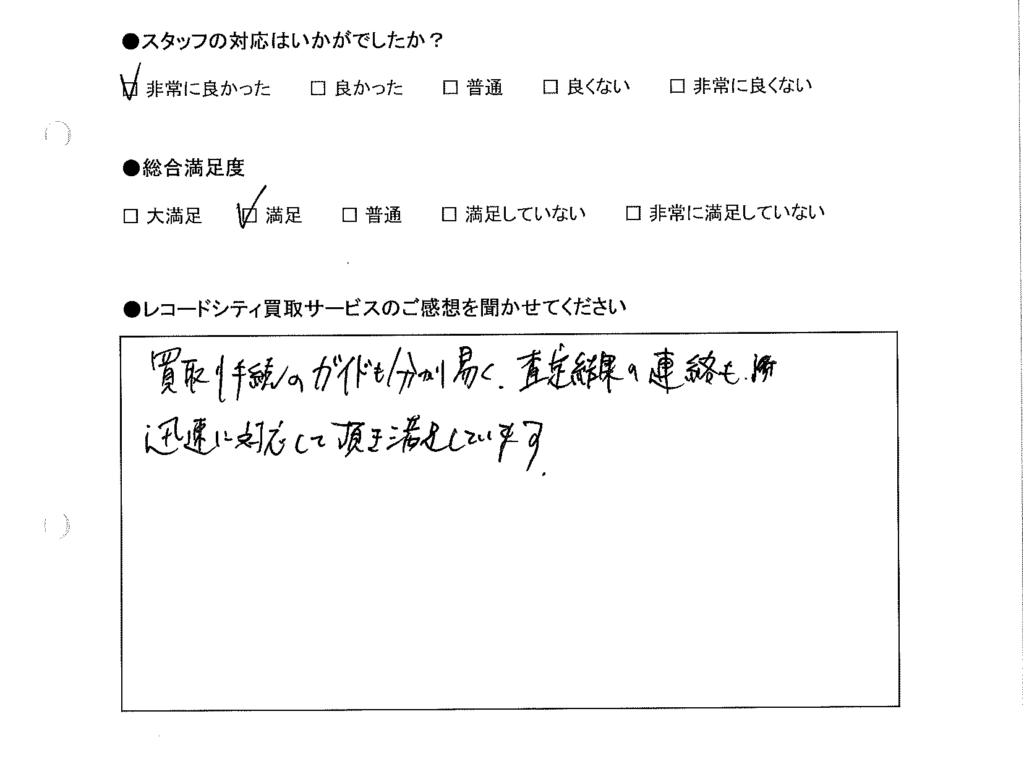 ●スタッフの対応はいかがでしたか？
☑ 非常に良かった　□ 良かった　□ 普通　□ 良くない　□ 非常に良くない
●総合満足度
□ 大満足　☑ 満足　□ 普通　□ 満足していない　□ 非常に満足していない
●レコードシティ買取サービスのご感想を聞かせてください
買取り手続のガイドも分かり易く、査定結果の連絡も、
迅速に対応して頂き満足しています。